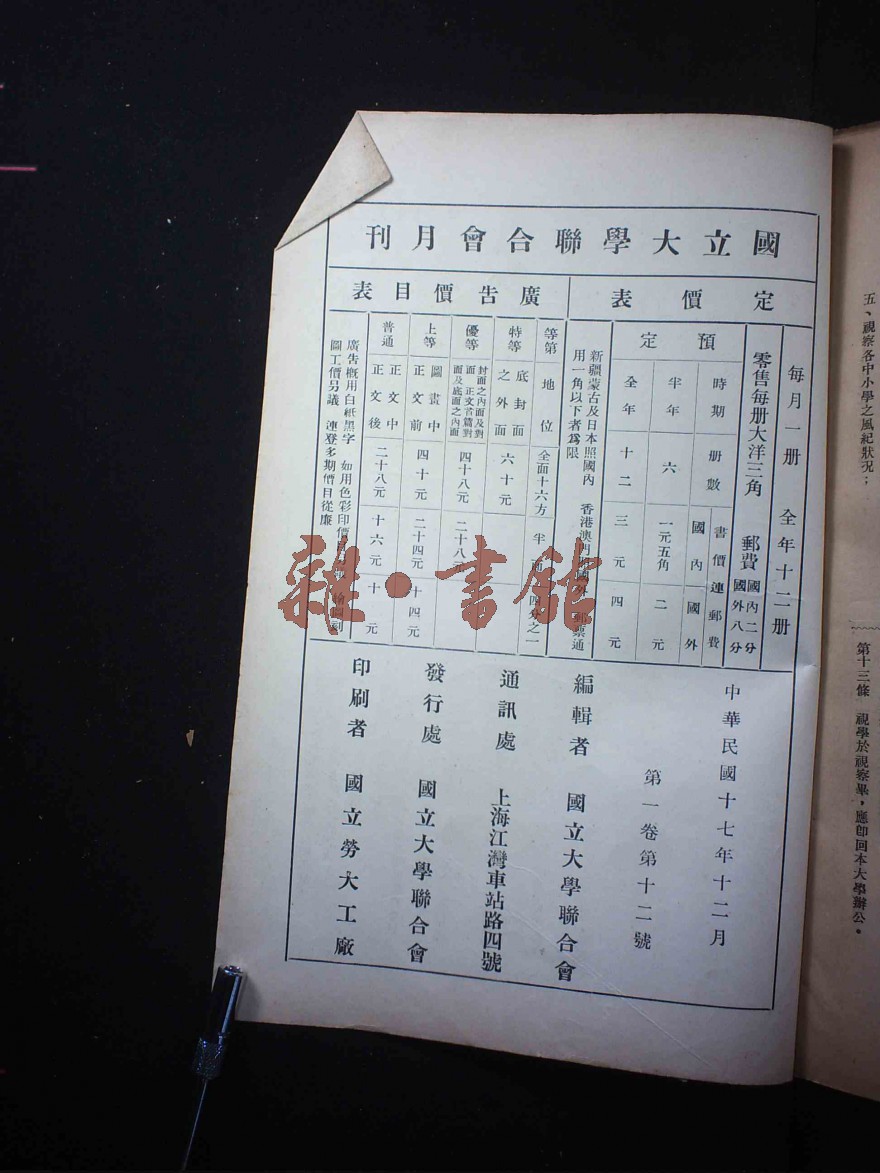 國立大學聯合會月刊
定價表
每月一册 全年十二册
零售每册大洋三角 郵費 國內二分 國外八分
預定
時期 册數 書價連郵費 國內 國外
半年 六 一元五角 二元
全年 十二 三元 四元
新疆蒙古及日本照國內 香港澳門 國外 郵票通
用一角以下者爲限
廣告價目表
等第 地位 全面十六方 半面 四分之一
特等 底封面之外面 六十元
優等 封面之內面及對面 正文首篇對面及底面之內面 四十八元 二十八元
上等 圖畫中正文前 四十元 二十四元 十四元
普通 正文中正文後 二十八元 十六元 十元
廣告概用白紙黑字 如用色彩印價目另
圖工價另議 連登多期價目從廉
中華民國十七年十二月
第一卷第十二號
編輯者 國立大學聯合會
通訊處 上海江灣車站路四號
發行處 國立大學聯合會
印刷者 國立勞大工廠
五、視察各中小學之風紀狀況；
第十三條 視學於視察畢，應卽回本大學辦公。
雜·書館